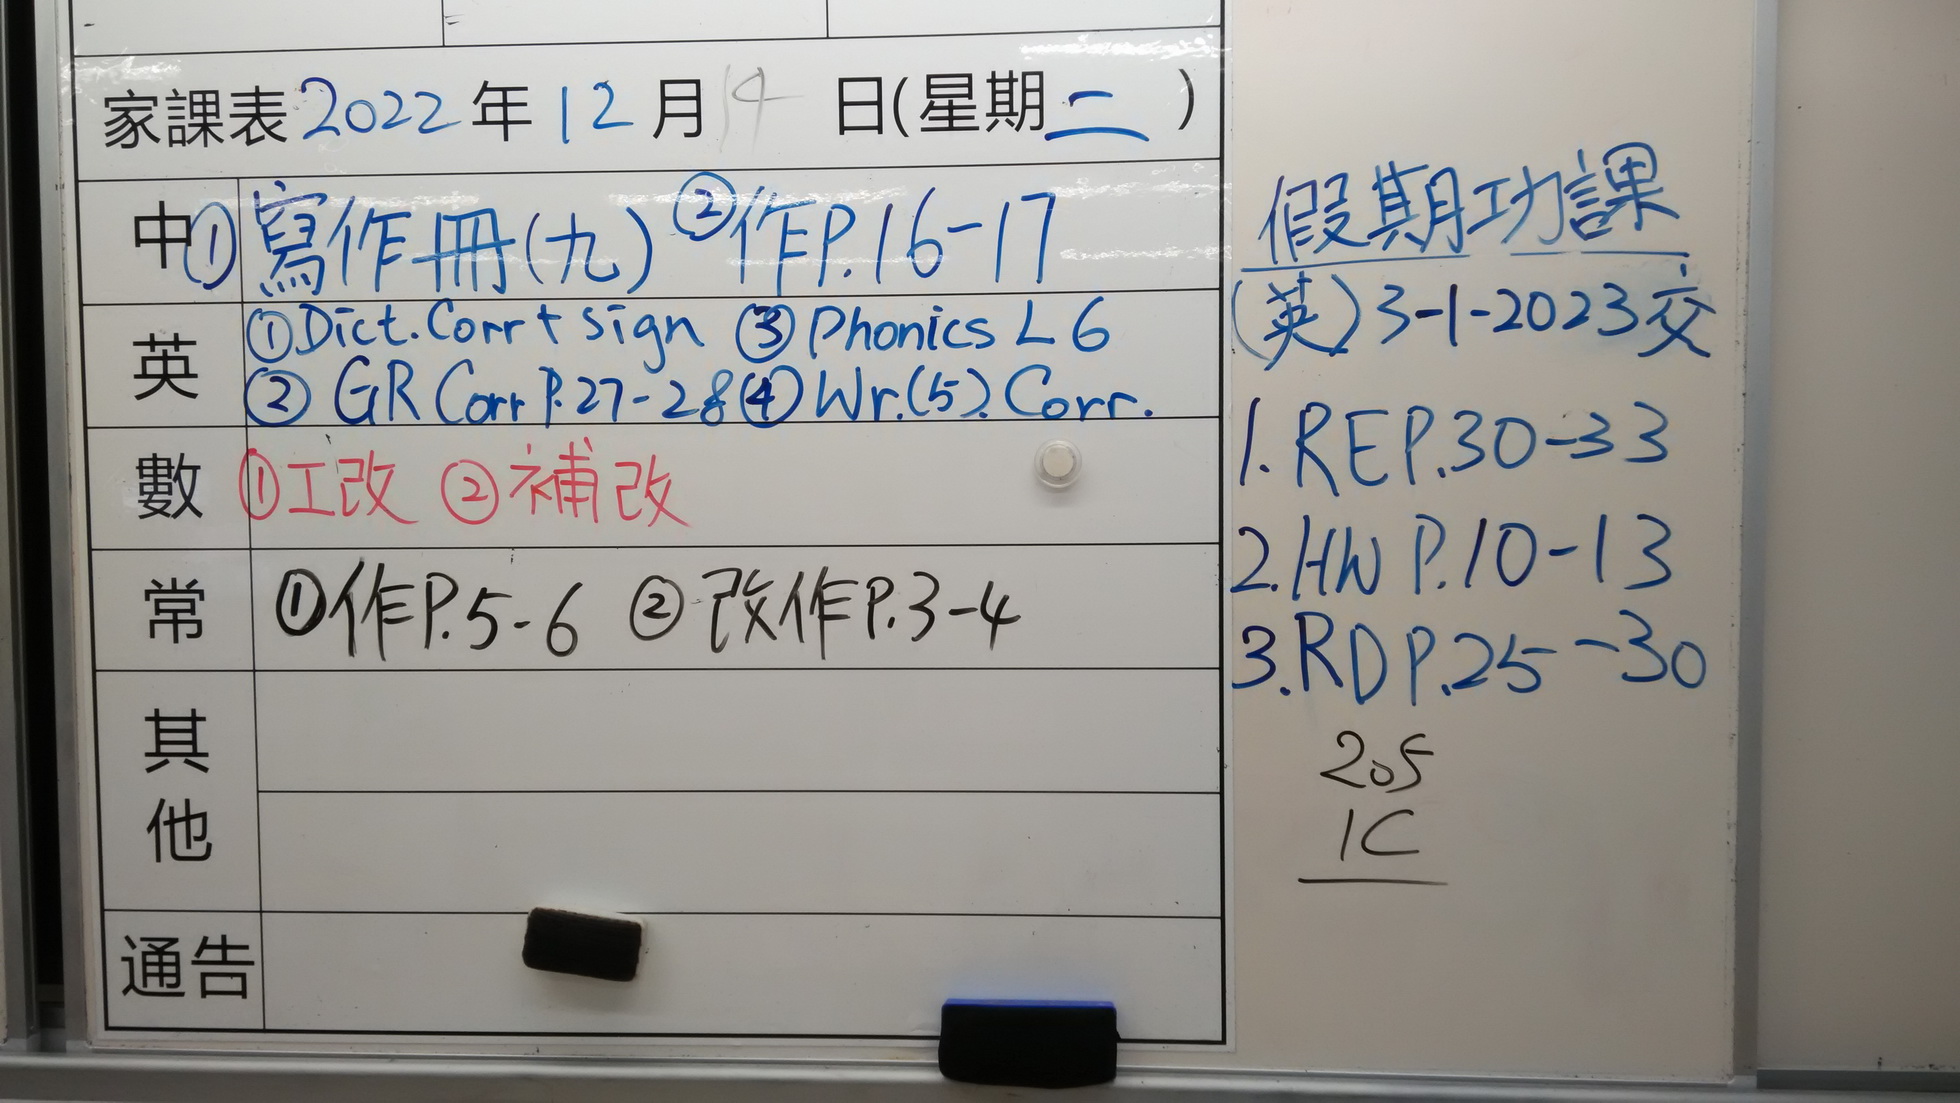 家課表2022年12月 日(星期二)
中 ①寫作冊(九) ②作P.16-17
英 ①Dict. Corr + sign ③Phonics L6
②GR Corr P.27-28 ④Wr.(5). Corr.
數 ①工改 ②補改
常 ①作P.5-6 ②改作P.3-4
其他
通告
假期功課
(英)3-1-2023交
1. RE P.30-33
2. HW P.10-13
3. RD P.25-30
205
1C